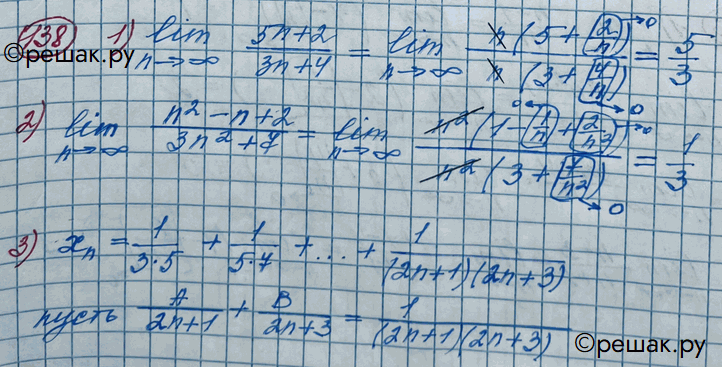 138 1) lim n→∞ (5n+2)/(3n+4) = lim n→∞ n(5+2/n)→0 / n(3+4/n)→0 = 5/3
©решак.ру
2) lim n→∞ (n²-n+2)/(3n²+7) = lim n→∞ n²(1-1/n+2/n²)→0 / n²(3+7/n²)→0 = 1/3
3) xₙ = 1/(3·5) + 1/(5·7) + ... + 1/((2n+1)(2n+3))
пусть A/(2n+1) + B/(2n+3) = 1/((2n+1)(2n+3))
©решак.ру